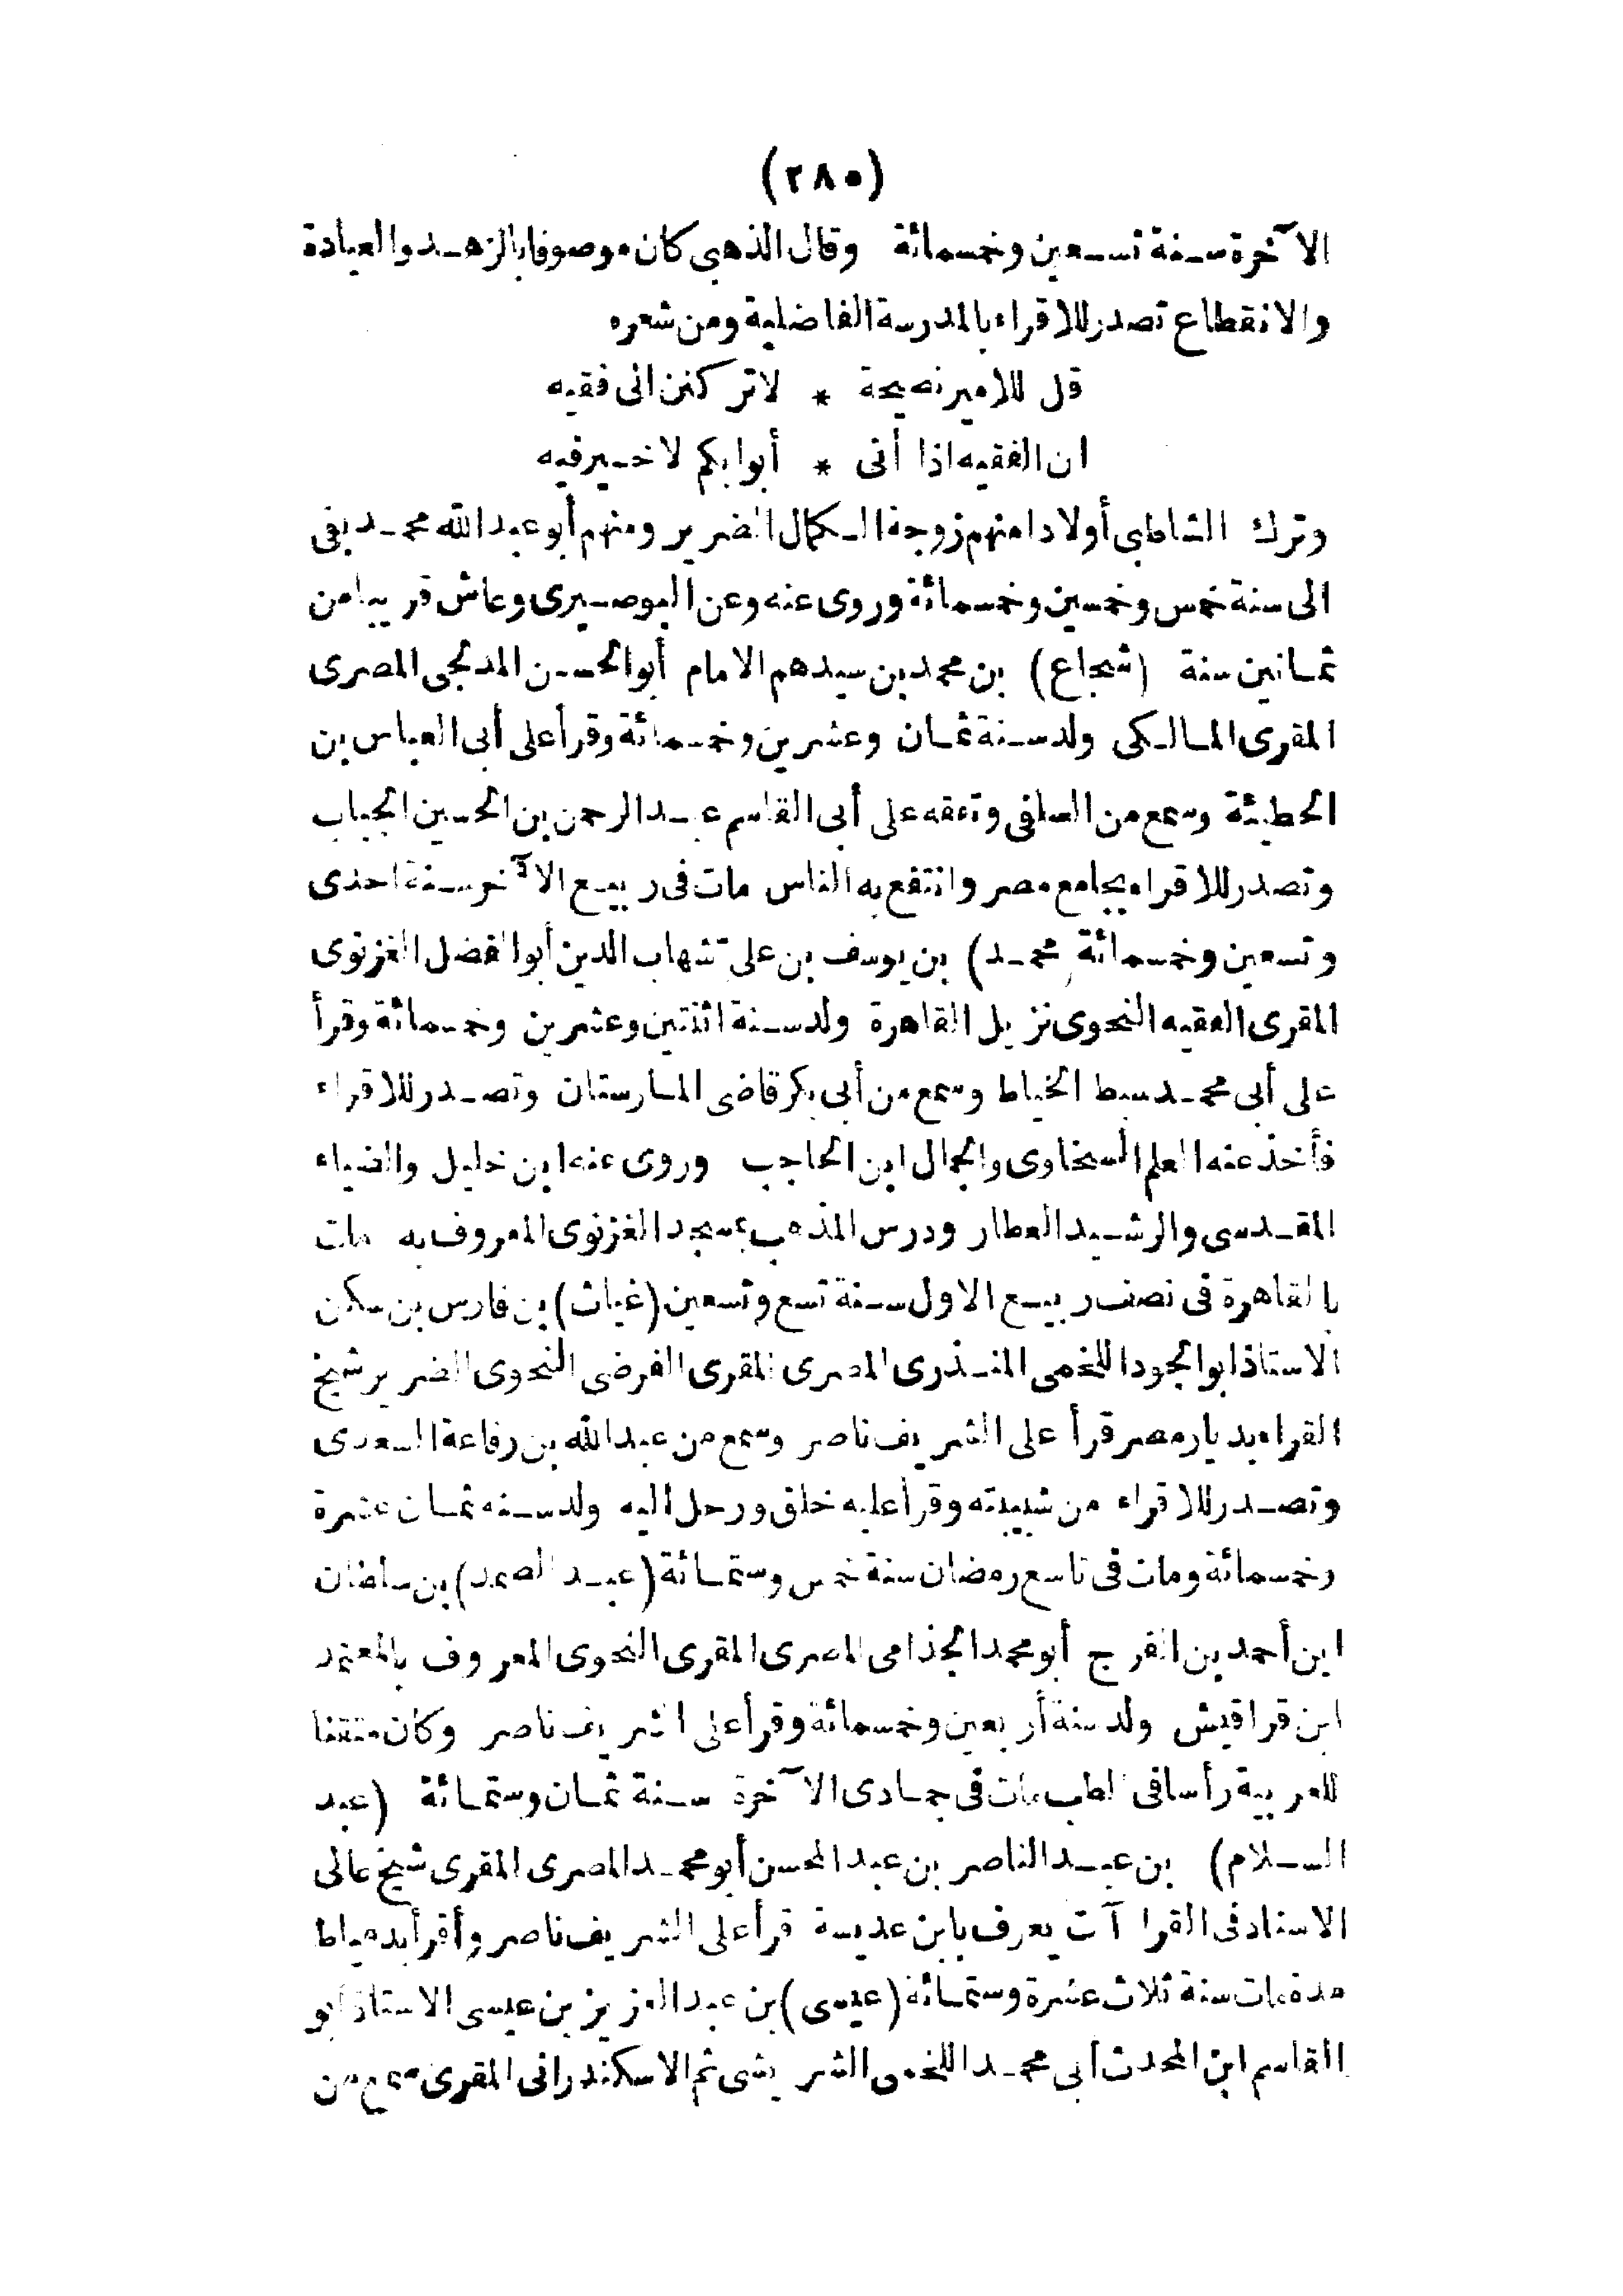 (٢٨٠)
الآخرة سنة تسعين وخمسمائة وقال الذهبي كان موصوفا بالزهد والعبادة
والانقطاع تصدر للاقراء بالمدرسة الفاضلية ومن شعره
قل للامير نصيحة * لا تركنن الى فقيه
ان الفقيه اذا أتى * أبوابكم لا خير فيه
وترك الشاطبي أولادا منهم زوجة الكمال الضرير ومنهم أبو عبد الله محمد بقى
الى سنة خمس وخمسين وخمسمائة وروى عنه وعن البوصيرى وعاش قريبا من
ثمانين سنة (شجاع) بن محمد بن سيدهم الامام أبو الحسن المدلجى المصرى
المقرى المالكى ولد سنة ثمان وعشرين وخمسمائة وقرأ على أبى العباس بن
الحطيئة وسمع من السلفى وتفقه على أبى القاسم عبد الرحمن بن الحسين الجباب
وتصدر للاقراء بجامع مصر وانتفع به الناس مات فى ربيع الآخر سنة احدى
وتسعين وخمسمائة محمد) بن يوسف بن على شهاب الدين أبو الفضل الغزنوى
المقرى الفقيه النحوى نزيل القاهرة ولد سنة اثنتين وعشرين وخمسمائة وقرأ
على أبى محمد سبط الخياط وسمع من أبى بكر قاضى المارستان وتصدر للاقراء
فأخذ عنه العلم السخاوى والجمال ابن الحاجب وروى عنه ابن خليل والضياء
المقدسى والرشيد العطار ودرس المذهب بمسجد الغزنوى المعروف به مات
بالقاهرة فى نصف ربيع الاول سنة تسع وتسعين (غياث) بن فارس بن سكن
الاستاذ ابو الجود اللخمى المنذرى المصرى المقرى الفرضى النحوى الضرير شيخ
القراء بديار مصر قرأ على الشريف ناصر وسمع من عبد الله بن رفاعة السعدى
وتصدر للاقراء من شبيبته وقرأ عليه خلق ورحل اليه ولد سنه ثمان عشرة
وخمسمائة ومات فى تاسع رمضان سنة خمس وستمائة (عبد الصمد) بن سلطان
ابن أحمد بن الفرج أبو محمد الجذامى المصرى المقرى النحوى المعروف بالمعتمد
ابن قراقيش ولد سنة أربعين وخمسمائة وقرأ على الشريف ناصر وكان متقنا
للعربية رأسا فى الطب مات فى جمادى الآخرة سنة ثمان وستمائة (عبد
السلام) بن عبد الناصر بن عبد المحسن أبو محمد المصرى المقرى شيخ عالى
الاسناد فى القراآت يعرف بابن عديسة قرأ على الشريف ناصر وأقرأ بدمياط
مدة مات سنة ثلاث عشرة وستمائة (عيسى) بن عبد العزيز بن عيسى الاستاذ ابو
القاسم ابن المحدث أبى محمد اللخمى الشريشى ثم الاسكندرانى المقرى سمع من